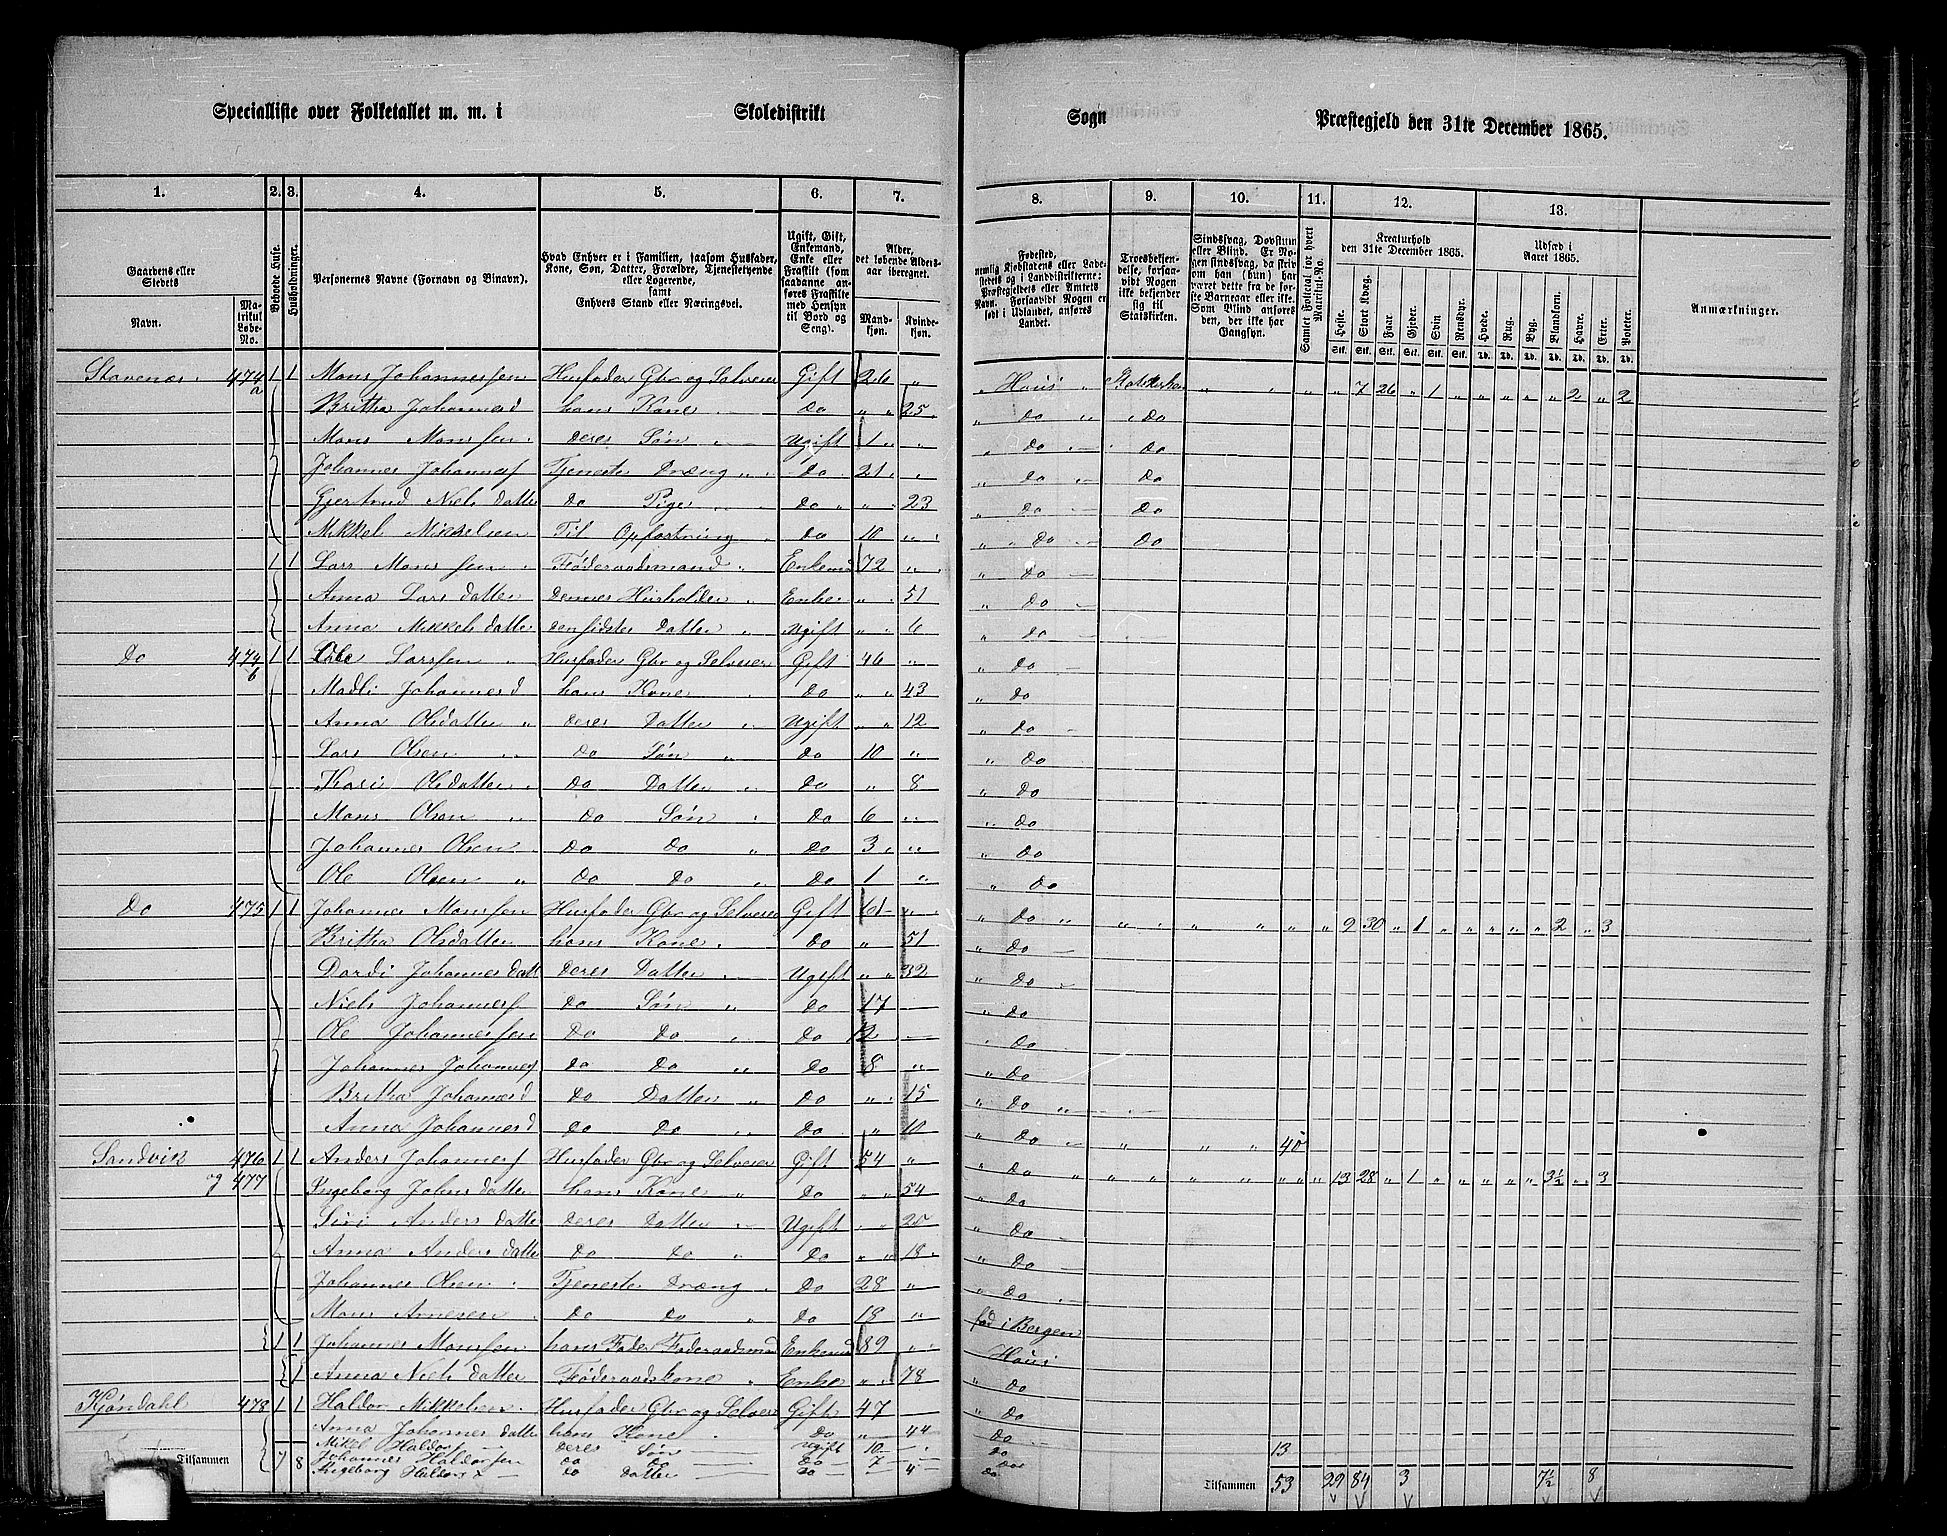 Specialliste over Folketallet m. m. i Skoledistrikt Sogn Præstegjeld den 31te December 1865.
1. 2. 3. 4. 5. 6. 7. 8. 9. 10. 11. 12. 13.
Gaardens eller Stedets Navn. Matrikul Løbe-No. Beboede Huse. Husholdninger. Personernes Navne (Fornavn og Binavn). Hvad Enhver er i Familien, saasom Husfader, Kone, Søn, Datter, Forældre, Tjenestetyende eller Logerende, samt Enhvers Stand eller Næringsvei. Ugift, Gift, Enkemand, Enke eller Fraskilt (som saadanne anføres Fraskilte med Hensyn til Bord og Seng). Alder, det løbende Aldersaar iberegnet. Mandkjøn. Kvindekjøn.
Fødested, nemlig Kjøbstadens eller Ladestedets og i Landdistrikterne: Præstegjeldets eller Amtets Navn. Forsaavidt Nogen er født i Udlandet, anføres Landet. Troesbekjendelse, forsaavidt Nogen ikke bekjender sig til Statskirken. Sindssvag, Døvstum eller Blind. Er Nogen sindssvag, da skriv om han (hun) har været dette fra de første Barneaar eller ikke. Som Blind anføres den, der ikke har Gangsyn. Samlet Folketal for hvert Matrikul-No. Kreaturhold den 31te December 1865. Heste. Stort Kvæg. Faar. Gjeder. Svin. Rensdyr. Udsæd i Aaret 1865. Hvede. Rug. Byg. Blandkorn. Havre. Erter. Poteter. Anmærkninger.
Stavenæs 474 a 1 1 Mons Johannessen Husfader Gbr og Selveier Gift 26 " Haus " " 7 26 " 1 " " " " " 2 " 2
Britha Johannesd hans Kone Do " 25 Do Do
Mons Monssen deres Søn Ugift 1 " Do Do
Johannes Johannesf Tjeneste Dræng Do 21 " Do Do
Gjertrud Nielsdatter Do Pige Do " 23 Do Do
Mikkel Mikkelsen Til Opfostring Do 10 " Do Do
1 1 Lars Monssen Føderaadsmand Enkemd 72 " Do
Anna Larsdatter Dennes Husholder Enke " 51 Do
Anna Mikkelsdatter den sidstes Datter Ugift " 6 Do
Do 474 b 1 1 Ole Larssen Husfader Gbr og Selveier Gift 46 " Do
Madli Johannesd hans Kone Do " 43 Do
Anna Olsdatter deres Datter Ugift " 12 Do
Lars Olsen Do Søn Do 10 " Do
Kari Olsdatter Do Datter Do " 8 Do
Mons Olsen Do Søn Do 6 " Do
Johannes Olsen Do Do Do 3 " Do
Ole Olsen Do Do Do 1 " Do
Do 475 1 1 Johannes Monssen Husfader Gbr og Selveier Gift 61 " Do " 9 30 " 1 " " " " " 2 " 3
Britha Olsdatter hans Kone Do " 51 Do
Dordi Johannesdatt deres Datter Ugift " 32 Do
Niels Johannesf Do Søn Do 17 Do
Ole Johannessen Do Do Do 12 Do
Johannes Johannesf Do Do Do 8 " Do
Britha Johannesd Do Datter Do " 15 Do
Anna Johannesd Do Do Do " 10 Do 40
Sandvik 476 og 477 1 1 Anders Johannesf Husfader Gbr og Selveier Gift 54 " Do " 13 28 " 1 " " " " " 3½ " 3
Ingeborg Johnsdatter hans Kone Do " 54 Do
Siri Andersdatter deres Datter Ugift " 25 Do
Anna Andersdatter Do Do Do " 18 Do
Johannes Olsen Tjeneste Dræng Do 28 " Do
Mons Arnesen Do Do Do 18 " fød i Bergen
1 1 Johannes Monssen hans Fader Føderaadsmand Enkemd 89 " Haus
1 Anna Nielsdatter Føderaadskone Enke " 78 Do
Kjøndahl 478 1 1 Haldor Mikkelsen Husfader Gbr og Selveier Gift 47 Do
Anna Johannesdatter hans Kone Do " 44 Do
Mikel Haldorf deres Søn Ugift 10 " Do 13
Johannes Haldorsen Do Do Do 7 " Do
Ingeborg Haldors Do Datter Do " 4 Do
Tilsammen 7 8 Tilsammen 53 29 84 3 7½ 8